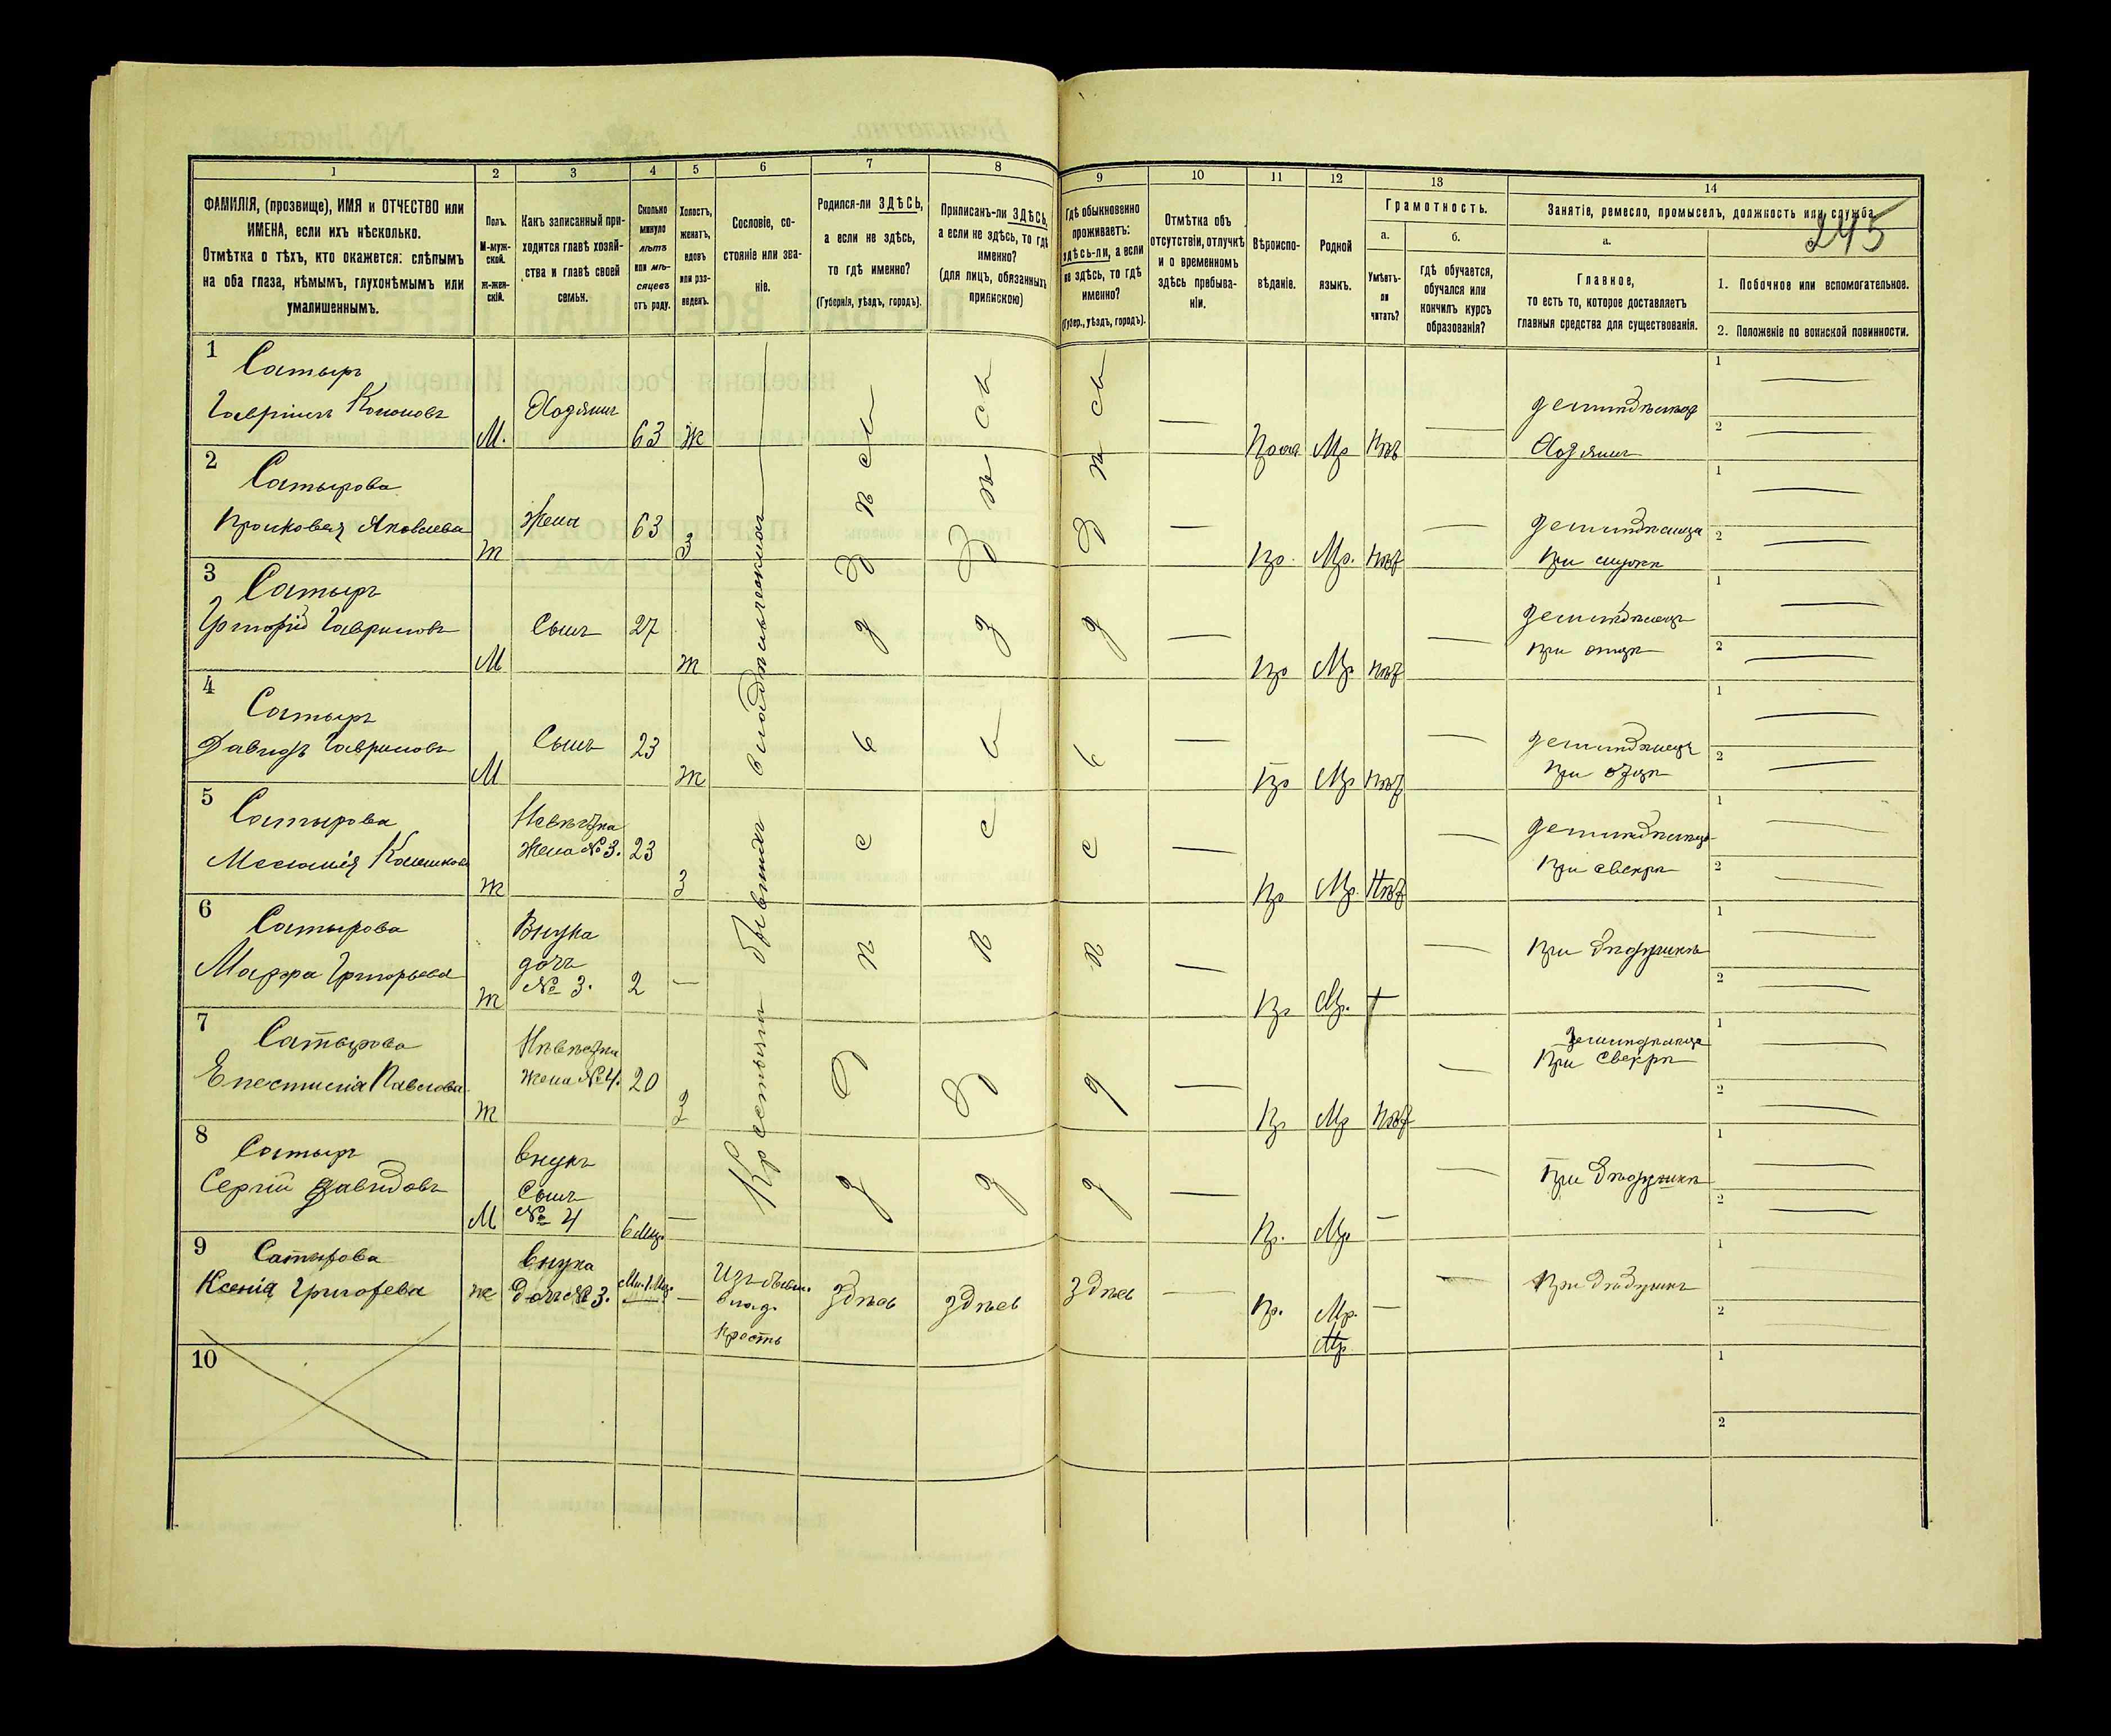 245
1
2
3
4
5
6
7
8
9
10
11
12
13
14
ФАМИЛІЯ, (прозвище), ИМЯ и ОТЧЕСТВО или
ИМЕНА, если ихъ нѣсколько.
Отмѣтка о тѣхъ, кто окажется: слѣпымъ
на оба глаза, нѣмымъ, глухонѣмымъ или
умалишеннымъ.
Полъ.
М-муж-
ской.
ж-жен-
скій.
Какъ записанный при-
ходится главѣ хозяй-
ства и главѣ своей
семьи.
Сколько
минуло
лѣтъ
или мѣ-
сяцевъ
отъ роду.
Холостъ,
женатъ,
вдовъ
или раз-
веденъ.
Сословіе, со-
стояніе или зва-
ніе.
Родился-ли ЗДѢСЬ,
а если не здѣсь,
то гдѣ именно?
(Губернія, уѣздъ, городъ).
Приписанъ-ли ЗДѢСЬ,
а если не здѣсь, то гдѣ
именно?
(для лицъ, обязанныхъ
припискою)
Гдѣ обыкновенно
проживаетъ:
здѣсь-ли, а если
не здѣсь, то гдѣ
именно?
(Губер., уѣздъ, городъ).
Отмѣтка объ
отсутствіи, отлучкѣ
и о временномъ
здѣсь пребыва-
ніи.
Вѣроиспо-
вѣданіе.
Родной
языкъ.
Грамотность.
а.
Умѣетъ-
ли
читать?
б.
гдѣ обучается,
обучался или
кончилъ курсъ
образованія?
Занятіе, ремесло, промыселъ, должность или служба.
а.
Главное,
то есть то, которое доставляетъ
главныя средства для существованія.
1. Побочное или вспомогательное.
2. Положеніе по воинской повинности.
Крестьяни бывших владѣльческих
здѣсь
здѣсь
здѣсь
1
Сатыръ
Гавріилъ Кононовъ
М.
Хозяинъ
63
Ж
Мр
земледѣлецъ
Хозяинъ
1
2
2
Сатырова
Яковлева
ж
Жена
63
З
Пр.
Мр.
при мужѣ
1
2
3
Сатыръ
Григорій Гавриловъ
М
Сынъ
27
ж
Пр
Мр.
земледѣлецъ
при отцѣ
1
2
4
Сатыръ
Давидъ Гавриловъ
М
Сынъ
23
ж
Пр
Мр
земледѣлецъ
при отцѣ
1
2
5
Сатырова
ж
Невѣстка
жена № 3.
23
З
Пр
Мр.
при свекрѣ
1
2
6
Сатырова
Григорьева
ж
Внука
дочь
№ 3.
2
Пр
Мр.
При дѣдушкѣ
1
2
7
Сатырова
Павлова
ж
Невѣстка
жена № 4.
20
З
Пр
Мр
При свекрѣ
1
2
8
Сатыръ
Сергій Давидовъ
М
внукъ
Сынъ
№ 4
6 мѣц.
Пр.
Мр
При дѣдушкѣ
1
2
9
Сатырова
Ксенія Григорева
ж
внука
дочь № 3.
Изъ бывш.
влад.
крестъ
здѣсь
здѣсь
здѣсь
Пр.
Мр.
Мр
При дѣдушкѣ
1
2
10
1
2